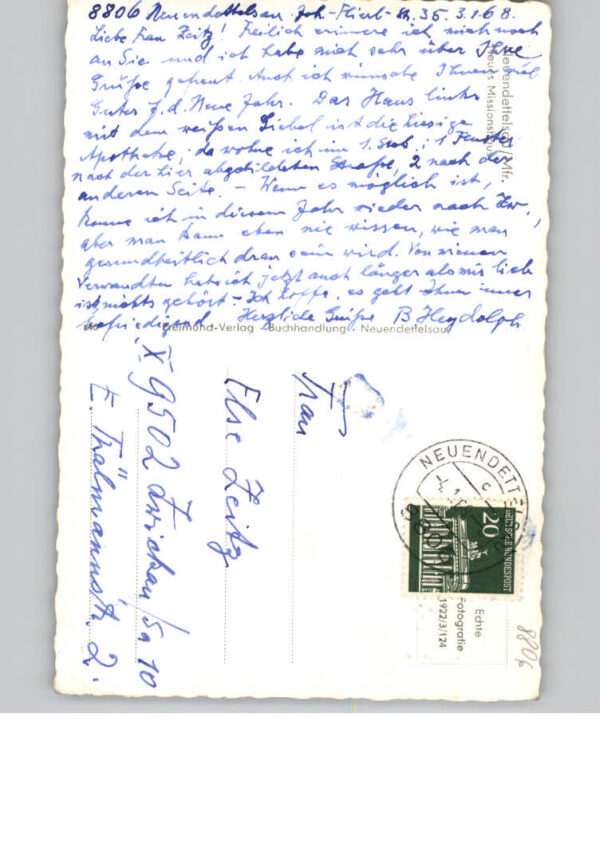 8806 Neuendettelsau Joh.-Flierl-Str. 35. 3.1.68.
Liebe Frau Zeitz! Freilich erinnere ich mich noch
an Sie und ich habe mich sehr über Ihre
Grüße gefreut. Auch ich wünsche Ihnen viel
Gutes f. d. Neue Jahr. Das Haus links
mit dem weißen Giebel ist die hiesige
Apotheke, da wohne ich im 1. Stock; 1 Fenster
nach der hier abgebildeten Straße, 2 nach der
anderen Seite. - Wenn es möglich ist,
komme ich in diesem Jahr wieder nach Zw.,
aber man kann eben nie wissen, wie man
gesundheitlich dran sein wird. Von meinen
Verwandten habe ich jetzt auch länger als mir lieb
ist nichts gehört - Ich hoffe, es geht Ihnen immer
befriedigend. Herzliche Grüße B Heydolph
Neuendettelsau/Mfr.
Neues Missionshaus
Freimund-Verlag Buchhandlung Neuendettelsau
Frau
Else Zeitz
X 9502 Zwickau/Sa 10
E. Thälmannstr. 2.
NEUENDETTELSAU
8806
c
20
DEUTSCHE BUNDESPOST
Echte
Fotografie
1922/3/124
8806